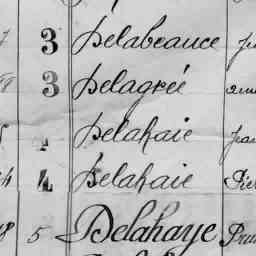 3 Delabeauce
3 Delagrée
Delahaie
4 Delahaie
8 5 Delahaye